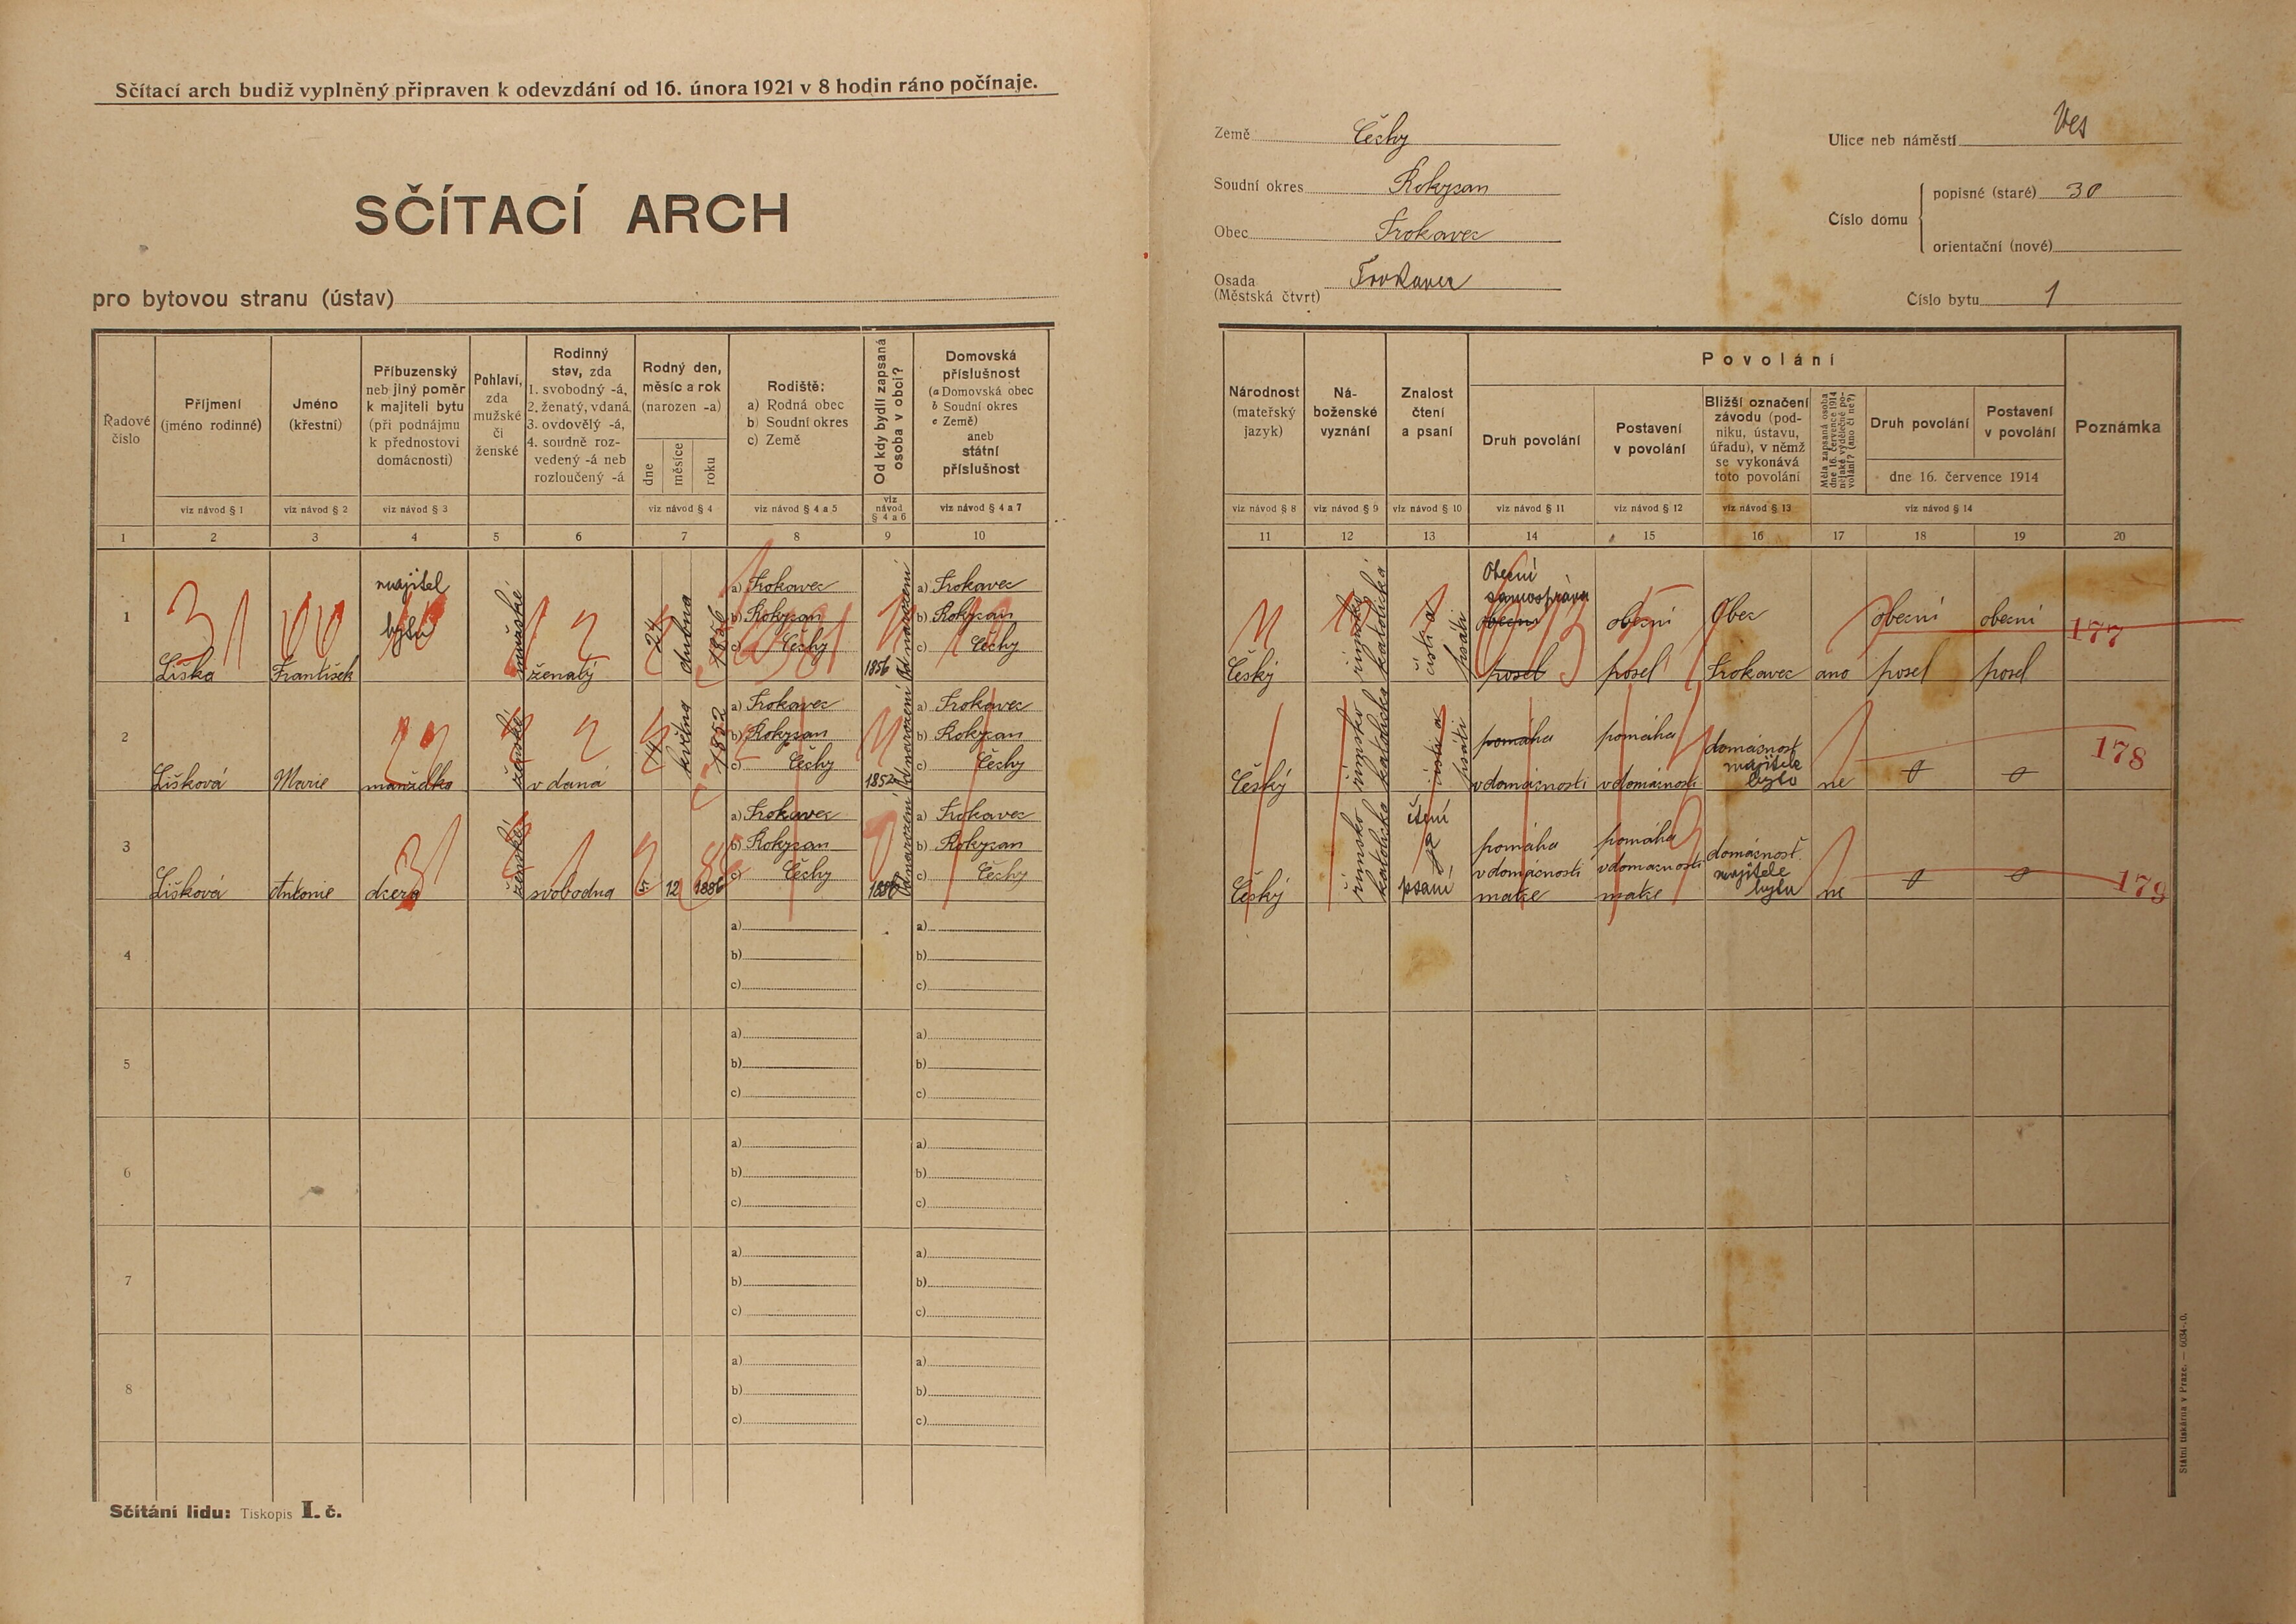 Sčítací arch budiž vyplněný připraven k odevzdání od 16. února 1921 v 8 hodin ráno počínaje.
SČÍTACÍ ARCH
pro bytovou stranu (ústav)
Země Čechy
Soudní okres Rokycan
Obec Trokavec
Osada Trokavec
(Městská čtvrt)
Ulice neb náměstí Ves
Číslo domu
popisné (staré) 30
orientační (nové)
Číslo bytu 1
Řadové číslo
Příjmení (jméno rodinné)
Jméno (křestní)
Příbuzenský neb jiný poměr k majiteli bytu (při podnájmu k přednostovi domácnosti)
Pohlaví, zda mužské či ženské
Rodinný stav, zda 1. svobodný -á, 2. ženatý, vdaná, 3. ovdovělý -á, 4. soudně rozvedený -á neb rozloučený -á
Rodný den, měsíc a rok (narozen -a)
dne měsíce roku
Rodiště: a) Rodná obec b) Soudní okres c) Země
Od kdy bydlí zapsaná osoba v obci?
Domovská příslušnost (a Domovská obec b Soudní okres c Země) aneb státní příslušnost
viz návod § 1 viz návod § 2 viz návod § 3 viz návod § 4 viz návod § 4 a 5 viz návod § 4 a 6 viz návod § 4 a 7
1 2 3 4 5 6 7 8 9 10
Národnost (mateřský jazyk)
Náboženské vyznání
Znalost čtení a psaní
Povolání
Druh povolání
Postavení v povolání
Bližší označení závodu (podniku, ústavu, úřadu), v němž se vykonává toto povolání
Měla zapsaná osoba dne 16. července 1914 nějaké výdělečné povolání? (ano či ne?)
Druh povolání
Postavení v povolání
dne 16. července 1914
Poznámka
viz návod § 8 viz návod § 9 viz návod § 10 viz návod § 11 viz návod § 12 viz návod § 13 viz návod § 14
11 12 13 14 15 16 17 18 19 20
1 Liška František majitel bytu mužské ženatý 24 dubna 1856
a) Trokavec
b) Rokycan
c) Čechy
1856 Od narození
a) Trokavec
b) Rokycan
c) Čechy
Český římsko katolická čísti a psáti
Obecní samospráva
obecní posel
obecní posel
Obec Trokavec
ano
obecní posel
obecní posel
177
2 Lišková Marie manželka ženské vdaná 14 května 1852
a) Trokavec
b) Rokycan
c) Čechy
1852 Od narození
a) Trokavec
b) Rokycan
c) Čechy
Český římsko katolická čísti a psáti
pomáha v domácnosti
pomáha v domácnosti
domácnost majitele bytu
ne 0 0
178
3 Lišková Antonie dcera ženské svobodna 5 12 1886
a) Trokavec
b) Rokycan
c) Čechy
1886 Od narození
a) Trokavec
b) Rokycan
c) Čechy
Český římsko katolická čtení psaní
pomáha v domácnosti matce
pomáha v domacnosti matce
domácnosť majitele bytu
ne 0 0
179
4
a)
b)
c)
a)
b)
c)
5
a)
b)
c)
a)
b)
c)
6
a)
b)
c)
a)
b)
c)
7
a)
b)
c)
a)
b)
c)
8
a)
b)
c)
a)
b)
c)
Sčítání lidu: Tiskopis I. č.
Státní tiskárna v Praze.